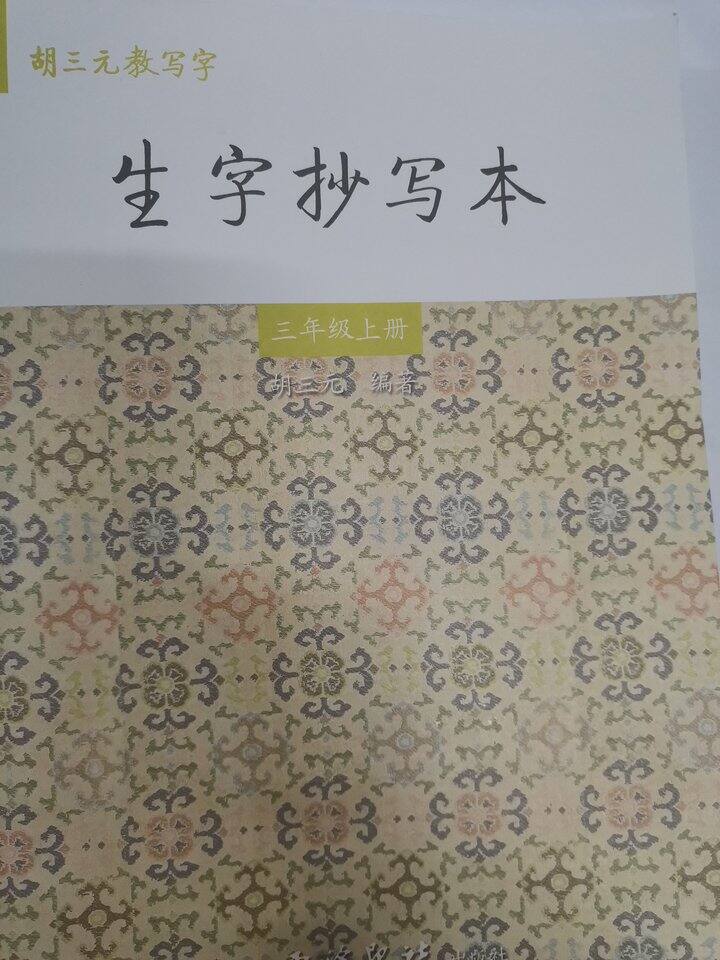 胡三元教写字
生字抄写本
三年级上册
胡三元 编著
出版社